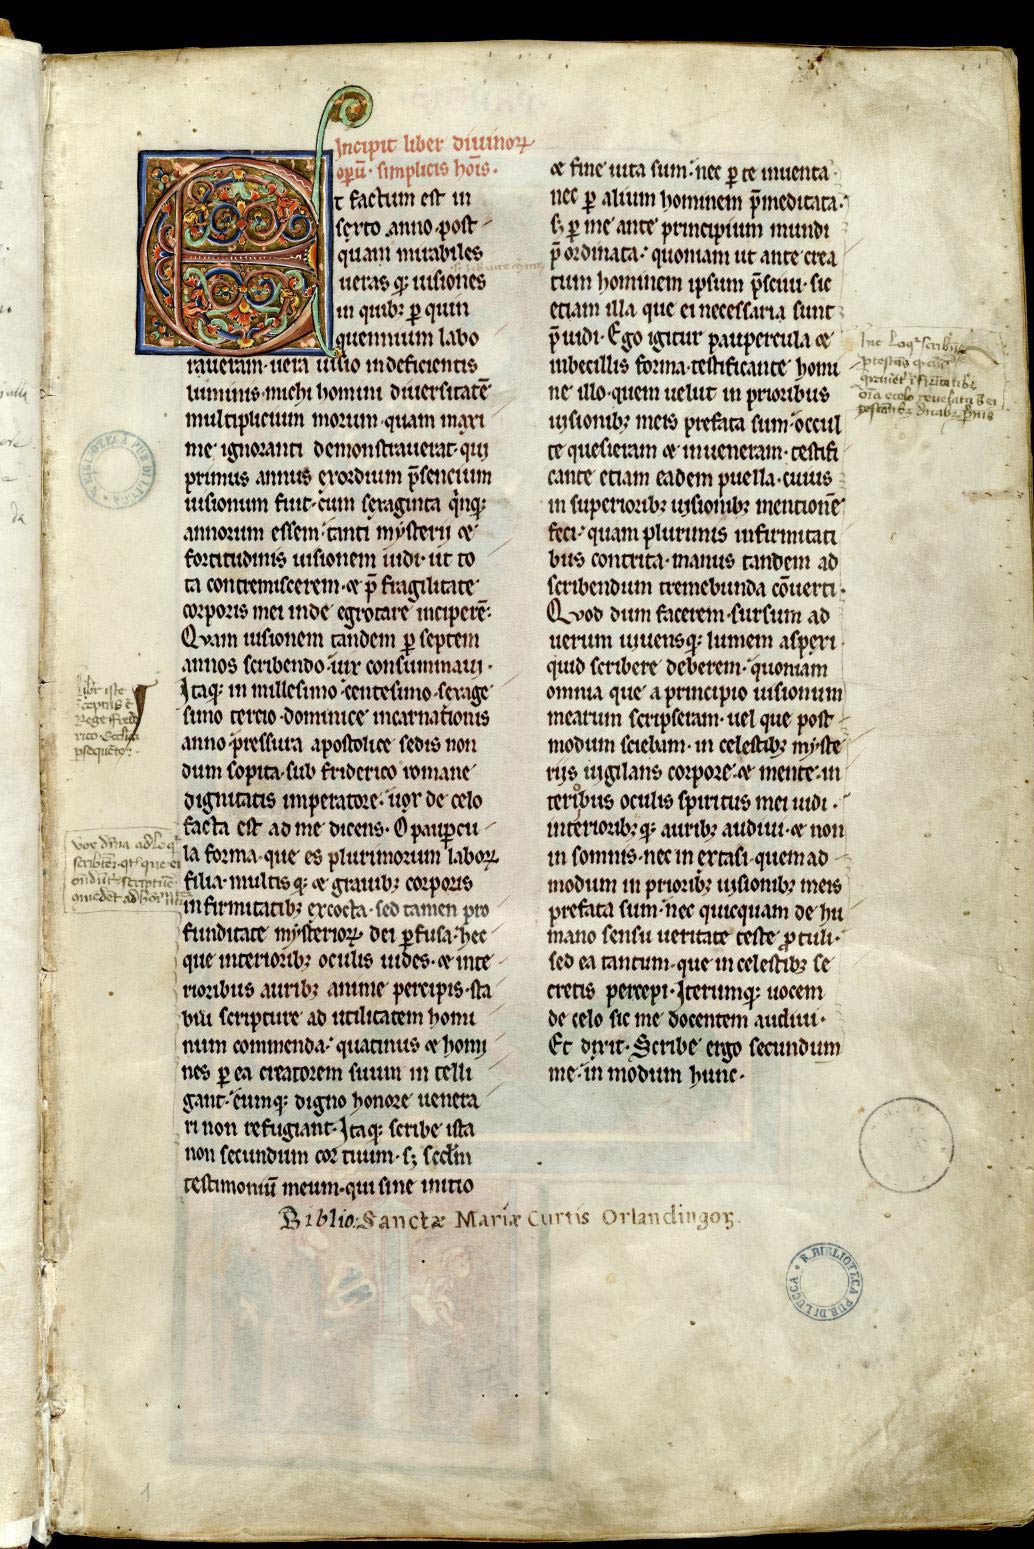 Incipit liber divinoꝝ
op̄ꝝū · simplicis ho͞is ·
Et factum est in
sexto anno · post
quam mirabiles
ueras qꝫ uisiones
in quibꝫ ꝑ quin
quennium labo
raueram · uera uisio indeficientis
luminis · michi homini diuersitatē
multiplicium morum · quam maxi
me ignoranti demonstrauerat · qui
primus annus exordium p̄sencium
uisionum fuit · cum sexaginta q̇nqꝫ
annorum essem · tanti mẏsterij ⁊
fortitudinis uisionem uidi · ut to
ta contremiscerem · ⁊ p̄ fragilitate
corporis mei inde egrotare inciperē ·
Quam uisionem tandem ꝑ septem
annos scribendo · uix consummaui ·
Itaqꝫ in millesimo · centesimo · sexage
simo tercio · dominice incarnationis
anno · pressura apostolice sedis non
dum sopita · sub friderico romane
dignitatis imperatore · uox de celo
facta est ad me dicens · O pauꝑcu
la forma · que es plurimorum laboꝝ
filia · multis qꝫ ⁊ grauibꝫ corporis
infirmitatibꝫ excocta · sed tamen pro
funditate mẏsterioꝝ dei ꝑfusa · hec
que interioribꝫ oculis uides · ⁊ inte
rioribus auribꝫ anime percipis · sta
bili scripture ad utilitatem homi
num commenda · quatinus ⁊ homi
nes ꝑ ea creatorem suum in telli
gant · eumqꝫ digno honore uenera
ri non refugiant · Itaqꝫ scribe ista
non secundum cor tuum · sꝫ sec̄dm
testimoniū meum · qui sine initio
⁊ fine uita sum · nec ꝑ te inuenta ·
nec ꝑ alium hominem p̄meditata ·
sꝫ ꝑ me ante principium mundi
p̄ordinata · quoniam ut ante crea
tum hominem ipsum p̄sciui · sic
etiam illa que ei necessaria sunt
p̄uidi · Ego igitur paupercula ⁊
inbecillis forma · testificante homi
ne illo · quem uelut in prioribus
uisionibꝫ meis prefata sum · occul
te quesieram ⁊ inueneram · testifi
cante etiam eadem puella · cuius
in superioribꝫ uisionibꝫ mentionē
feci · quam plurimis infirmitati
bus contrita · manus tandem ad
scribendum tremebunda cōuerti ·
Quod dum facerem · sursum ad
uerum uiuensqꝫ lumem aspexi ·
quid scribere deberem · quoniam
omnia que a principio uisionum
mearum scripseram · uel que post
modum sciebam · in celestibꝫ mẏste
rijs uigilans corpore · ⁊ mente · in
terioribus oculis spiritus mei uidi ·
interioribꝫ qꝫ auribꝫ audiui · ⁊ non
in somnis · nec in extasi · quem ad
modum in prioribꝫ uisionibꝫ meis
prefata sum · nec quicquam de hu
mano sensu ueritate teste ꝓtuli ·
sed ea tantum · que in celestibꝫ se
cretis percepi · Iterumqꝫ uocem
de celo sic me docentem audiui ·
Et dixit · Scribe ergo secundum
me · in modum hunc ·
Biblio: Sanctæ Mariæ Curtis Orlandingoꝝ.
R. BIBLIOTECA PUB. DI LUCCA
R. BIBLIOTECA PUB. DI LUCCA
1